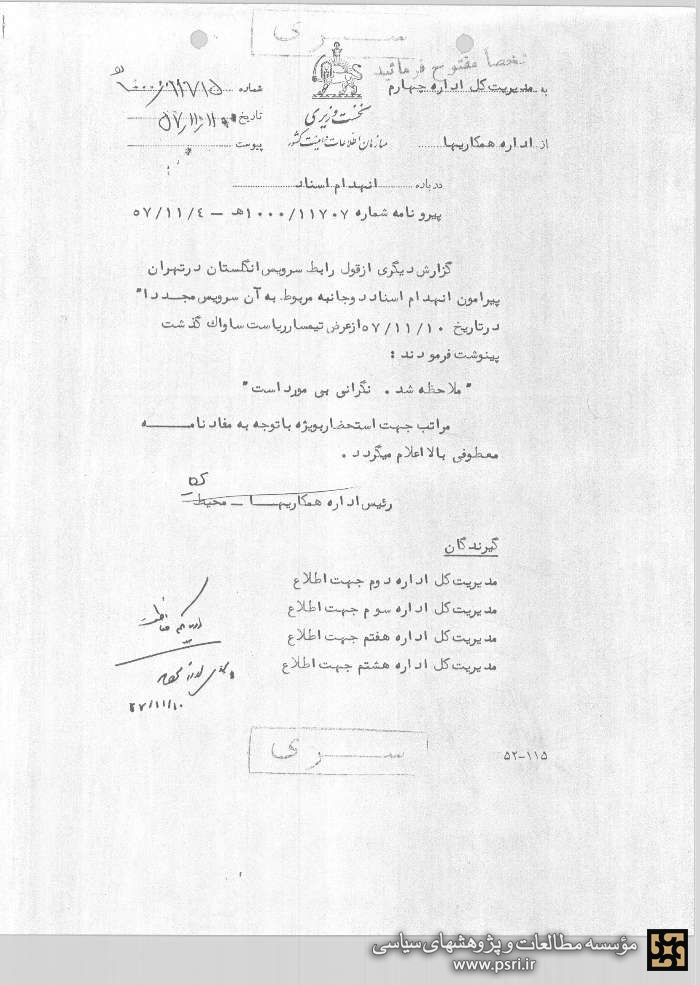 ســـری
شخصاً مفتوح فرمائید
به مدیریت کل اداره چهارم
شماره
تاریخ ۵۷/۱۱/۱۰
پیوست
نخست وزیری
سازمان اطلاعات و امنیت کشور
از اداره همکاریها
درباره انهدام اسناد
پیرو نامه شماره ۱۰۰۰/۱۱۷۰۷هـ – ۵۷/۱۱/٤
گزارش دیگری ازقول رابط سرویس انگلستان درتهران
پیرامون انهدام اسناد دوجانبه مربوط به آن سرویس مجـددا"
درتاریخ ۵۷/۱۱/۱۰ ازعرض تیمسارریاست ساواک گذشت
پینوشت فرمودند :
" ملاحظه شد . نگرانی بی مورد است "
مراتب جهت استحضاربویژه باتوجه به مفاد نامـــه
معطوفی بالا اعلام میگردد .
رئیس اداره همکاریهـــا – محیط
گیرندگان
مدیریت کل اداره دوم جهت اطلاع
مدیریت کل اداره سوم جهت اطلاع
مدیریت کل اداره هفتم جهت اطلاع
مدیریت کل اداره هشتم جهت اطلاع
۵۷/۱۱/۱۰
ســـری
۵۲–۱۱۵
مؤسسه مطالعات و پژوهشهای سیاسی
www.psri.ir